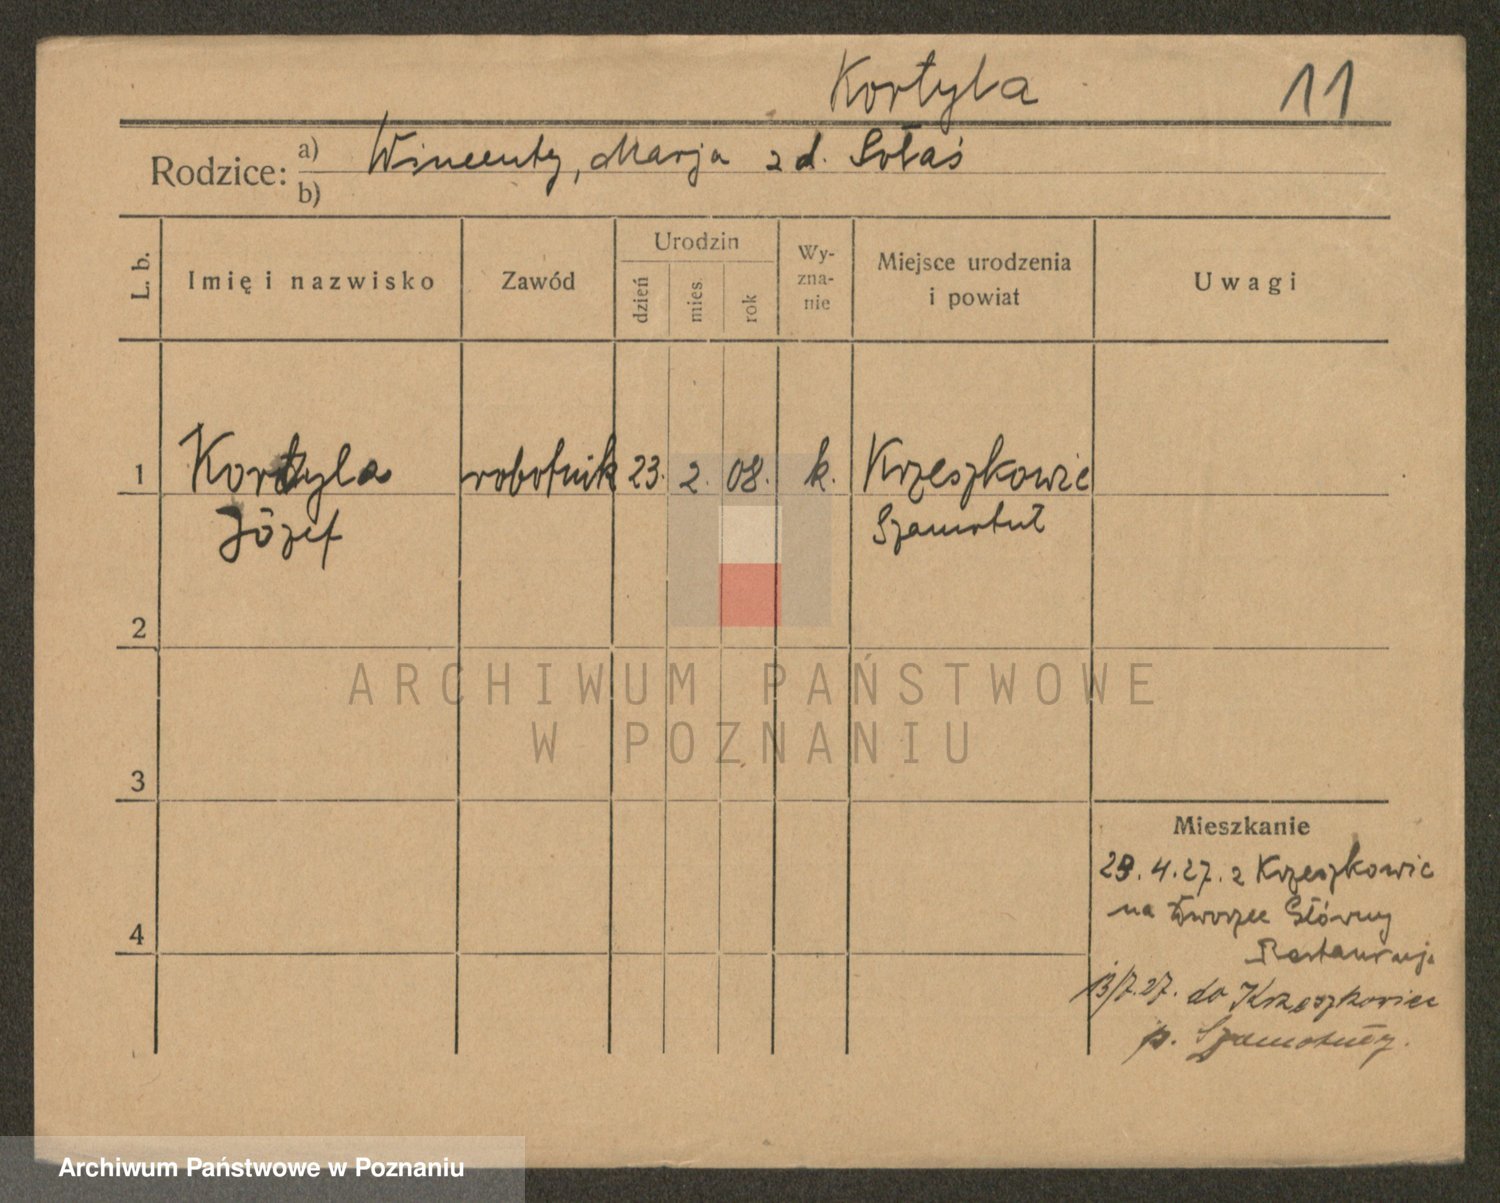 Kortyla 11
Rodzice: a) Wincenty, Marja z d. Sołaś
b)
L. b. Imię i nazwisko Zawód Urodzin dzień mies. rok Wyznanie Miejsce urodzenia i powiat Uwagi
1 Kortyla robotnik 23. 2. 08. k. Krzeszkowic
Józef Szamotuł
2
3
Mieszkanie
29.4.27. z Krzeszkowic
4 na Dworzec Główny
Restauracja
13/7.27. do Krzeszkowiec
p. Szamotuły.
ARCHIWUM PAŃSTWOWE
W POZNANIU
Archiwum Państwowe w Poznaniu